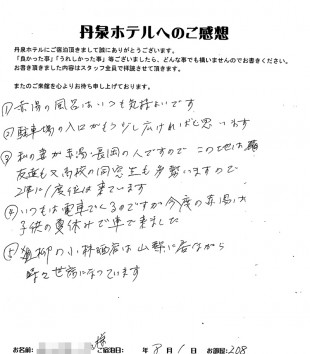 丹泉ホテルへのご感想
丹泉ホテルにご宿泊頂きまして誠にありがとうございます。
「良かった事」「うれしかった事」等ございましたら、どんな事でも構いませんのでお書きください。
お書き頂きました内容はスタッフ全員で拝読させて頂きます。
またのご来館を心よりお待ち申し上げております。
①赤湯の風呂はいつも気持よいです
②駐車場の入口がもう少し広ければと思います
③私の妻が赤湯・長岡の人ですので この地は
友達も又高校の同窓生も多勢いますので
2年に1度位は来ています
④いつもは電車でくるのですが今度の赤湯は
子供の夏休みで車で来ました
⑤ 柳の小林酒店は山形に居ながら
時々世話になっています
お名前: 様 ご宿泊日: 年 8 月 1 日 お部屋: 208